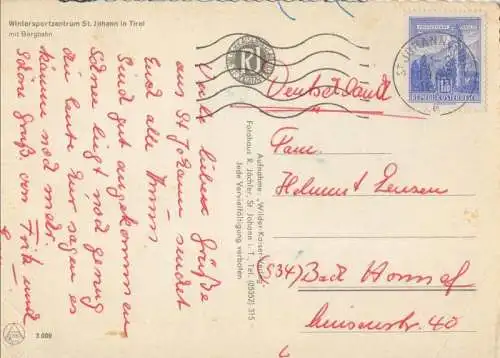 Wintersportzentrum St. Johann in Tirol
mit Bergbahn
Viele liebe Grüße
aus St Johann sendet
Euch alle
Sind gut angekommen
Schnee liegt noch genug
die Leute hier sagen es
käme noch mehr.
Schöne Grüße von Fritz und
3.009
Aufnahme: „Wilder-Kaiser-Verlag"
Fotohaus R. Jöchler, St. Johann i. T., Tel. (05352) 315
Jede Vervielfältigung verboten.
REPUBLIK ÖSTERREICH
Deutschland
Fam.
Helmut Zensen
(534) Bad Honnef
Luisenstr. 40